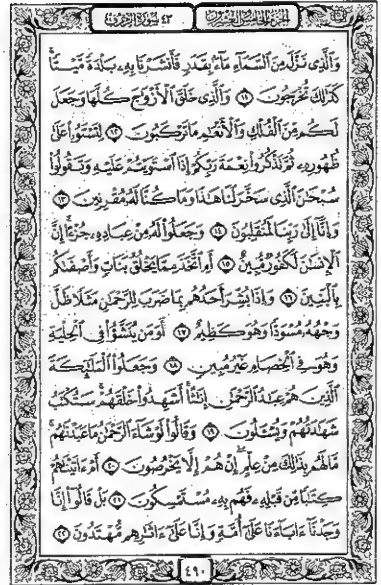 الجزء الخامس والعشرون ٤٣ سورة الزخرف
وَٱلَّذِى نَزَّلَ مِنَ ٱلسَّمَآءِ مَآءًۢ بِقَدَرٍ فَأَنشَرْنَا بِهِۦ بَلْدَةً مَّيْتًا ۚ
كَذَٰلِكَ تُخْرَجُونَ ١١ وَٱلَّذِى خَلَقَ ٱلْأَزْوَٰجَ كُلَّهَا وَجَعَلَ
لَكُم مِّنَ ٱلْفُلْكِ وَٱلْأَنْعَٰمِ مَا تَرْكَبُونَ ١٢ لِتَسْتَوُۥا۟ عَلَىٰ
ظُهُورِهِۦ ثُمَّ تَذْكُرُوا۟ نِعْمَةَ رَبِّكُمْ إِذَا ٱسْتَوَيْتُمْ عَلَيْهِ وَتَقُولُوا۟
سُبْحَٰنَ ٱلَّذِى سَخَّرَ لَنَا هَٰذَا وَمَا كُنَّا لَهُۥ مُقْرِنِينَ ١٣
وَإِنَّآ إِلَىٰ رَبِّنَا لَمُنقَلِبُونَ ١٤ وَجَعَلُوا۟ لَهُۥ مِنْ عِبَادِهِۦ جُزْءًا ۚ إِنَّ
ٱلْإِنسَٰنَ لَكَفُورٌ مُّبِينٌ ١٥ أَمِ ٱتَّخَذَ مِمَّا يَخْلُقُ بَنَاتٍ وَأَصْفَىٰكُم
بِٱلْبَنِينَ ١٦ وَإِذَا بُشِّرَ أَحَدُهُم بِمَا ضَرَبَ لِلرَّحْمَٰنِ مَثَلًا ظَلَّ
وَجْهُهُۥ مُسْوَدًّا وَهُوَ كَظِيمٌ ١٧ أَوَمَن يُنَشَّؤُا۟ فِى ٱلْحِلْيَةِ
وَهُوَ فِى ٱلْخِصَامِ غَيْرُ مُبِينٍ ١٨ وَجَعَلُوا۟ ٱلْمَلَٰٓئِكَةَ
ٱلَّذِينَ هُمْ عِبَٰدُ ٱلرَّحْمَٰنِ إِنَٰثًا ۚ أَشَهِدُوا۟ خَلْقَهُمْ ۚ سَتُكْتَبُ
شَهَٰدَتُهُمْ وَيُسْـَٔلُونَ ١٩ وَقَالُوا۟ لَوْ شَآءَ ٱلرَّحْمَٰنُ مَا عَبَدْنَٰهُم ۗ
مَّا لَهُم بِذَٰلِكَ مِنْ عِلْمٍ ۖ إِنْ هُمْ إِلَّا يَخْرُصُونَ ٢٠ أَمْ ءَاتَيْنَٰهُمْ
كِتَٰبًا مِّن قَبْلِهِۦ فَهُم بِهِۦ مُسْتَمْسِكُونَ ٢١ بَلْ قَالُوٓا۟ إِنَّا
وَجَدْنَآ ءَابَآءَنَا عَلَىٰٓ أُمَّةٍ وَإِنَّا عَلَىٰٓ ءَاثَٰرِهِم مُّهْتَدُونَ ٢٢
٤٩٠